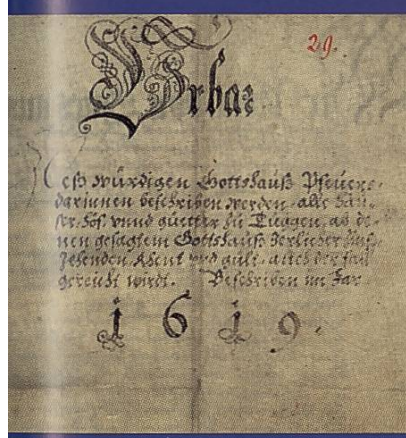 29.
Urbar
Deß würdigen Gottshauß Pfeuers
darinnen beschriben werden alle heü-
ser, höf vnnd güetter zu Tuggen, ab de-
nen gesagtem Gottshauß Jerlicher
Zehenden, vnd gült, auch der fahl
gereicht wirdt. Beschriben im Jar
1619.